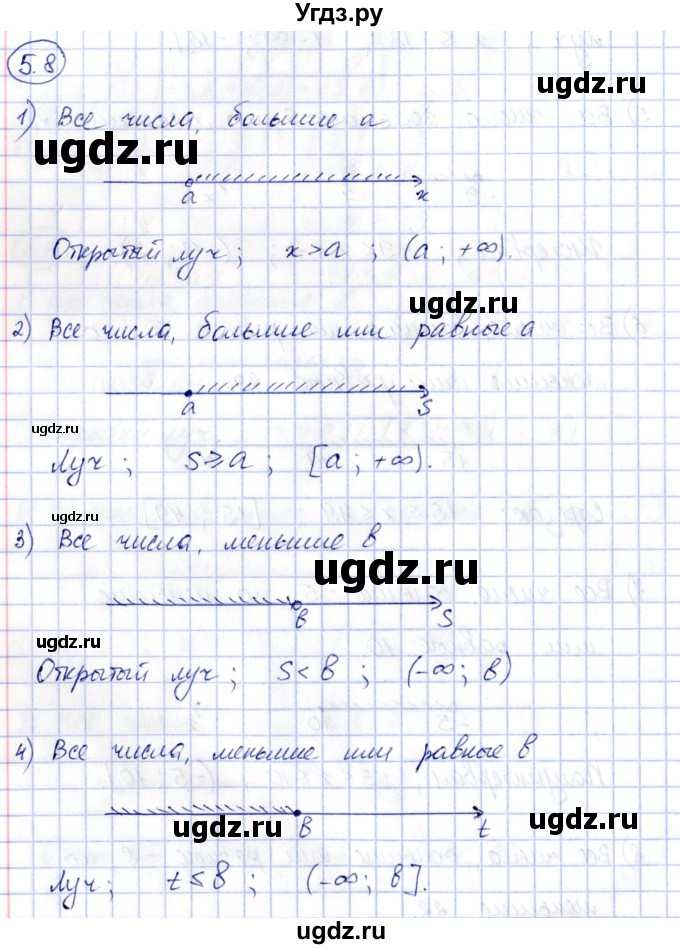 Угдз.ру
5.8
1) Все числа, большие a
ugdz.ru
ugdz.ru
a x
Открытый луч; x>a; (a; +∞).
ugdz.ru
2) Все числа, большие или равные a
a s
ugdz.ru
Луч; s⩾a; [a; +∞).
ugdz.ru
3) Все числа, меньшие b
ugdz.ru
b s
ugdz.ru
Открытый луч; s<b; (-∞; b)
4) Все числа, меньшие или равные b
ugdz.ru
ugdz.ru
b t
Луч; t≤b; (-∞; b].